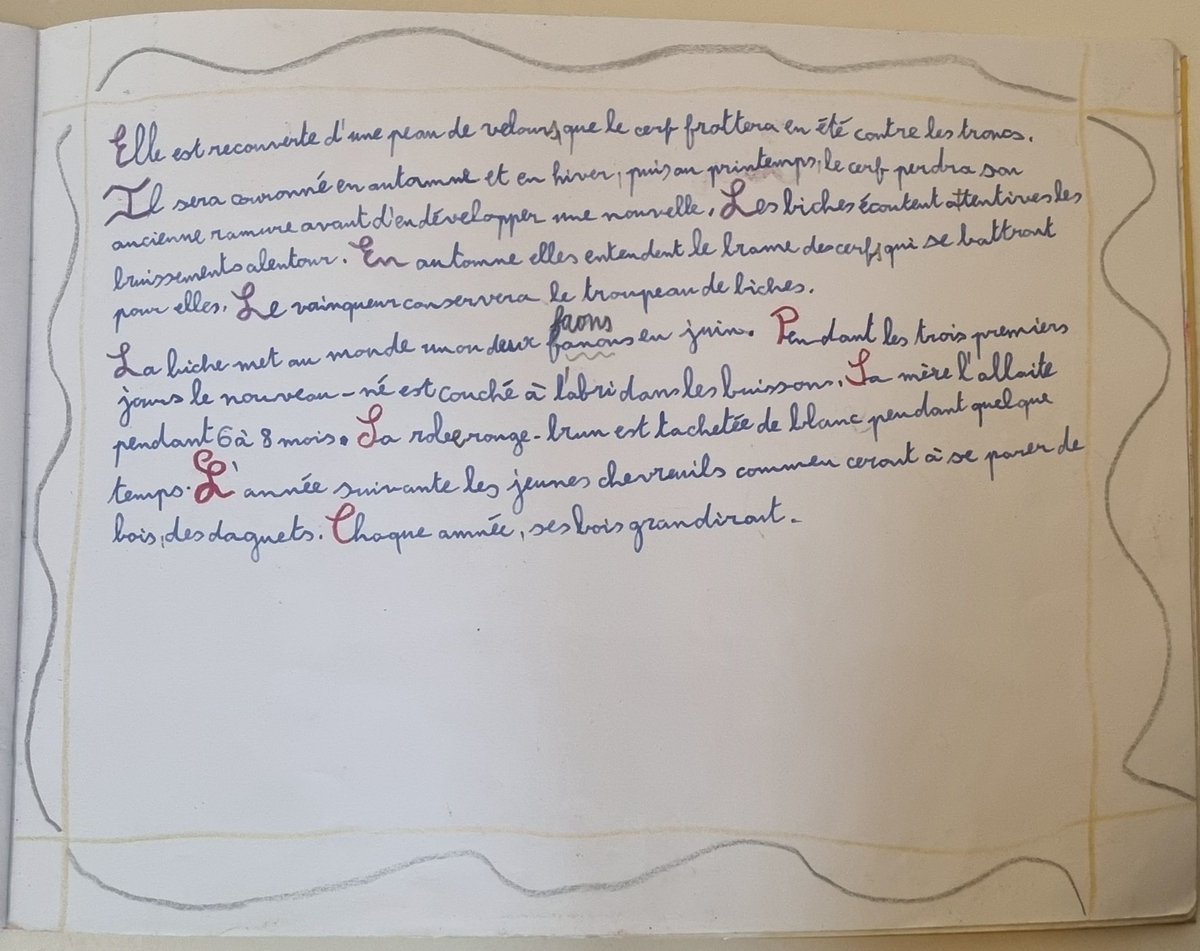 Elle est recouverte d'une peau de velours, que le cerf frottera en été contre les troncs.
Il sera couronné en automne et en hiver, puis au printemps, le cerf perdra son
ancienne ramure avant d'en développer une nouvelle. Les biches écoutent attentives les
bruissements alentour. En automne elles entendent le brame des cerfs, qui se battront
pour elles. Le vainqueur conservera le troupeau de biches.
faons
La biche met au monde un ou deux fanons en juin. Pendant les trois premiers
jours le nouveau-né est couché à l'abri dans les buissons. Sa mère l'allaite
pendant 6 à 8 mois. Sa robe rouge-brun est tachetée de blanc pendant quelque
temps. L'année suivante les jeunes chevreuils commenceront à se parer de
bois, des daguets. Chaque année, ses bois grandiront.